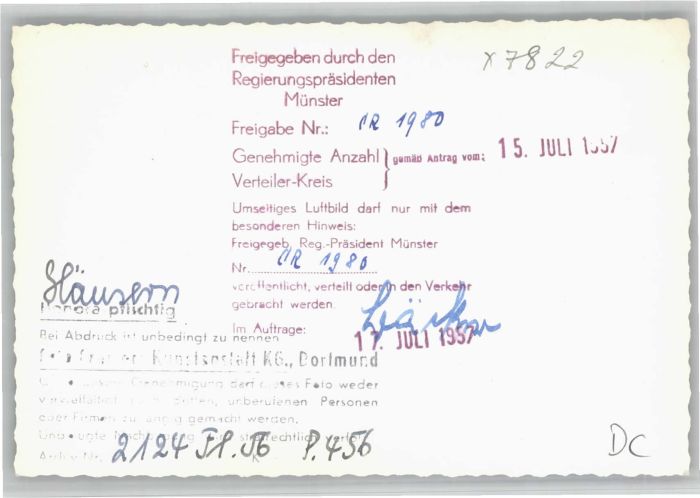 Freigegeben durch den
Regierungspräsidenten
Münster
x 7822
Freigabe Nr.: CR 1980
Genehmigte Anzahl } gemäß Antrag vom: 15. JULI 1957
Verteiler-Kreis
Umseitiges Luftbild darf nur mit dem
besonderen Hinweis:
Freigegeb. Reg.-Präsident Münster
Nr. CR 1980
veröffentlicht, verteilt oder in den Verkehr
gebracht werden.
Im Auftrage:
17. JULI 1957
Häusern
Honorarpflichtig
Bei Abdruck ist unbedingt zu nennen
Kunstanstalt KG., Dortmund
Genehmigung darf dieses Foto weder
vervielfältigt noch dritten, unberufenen Personen
oder Firmen zugängig gemacht werden.
strafrechtlich
Archiv-Nr. 2124 P.456
DC